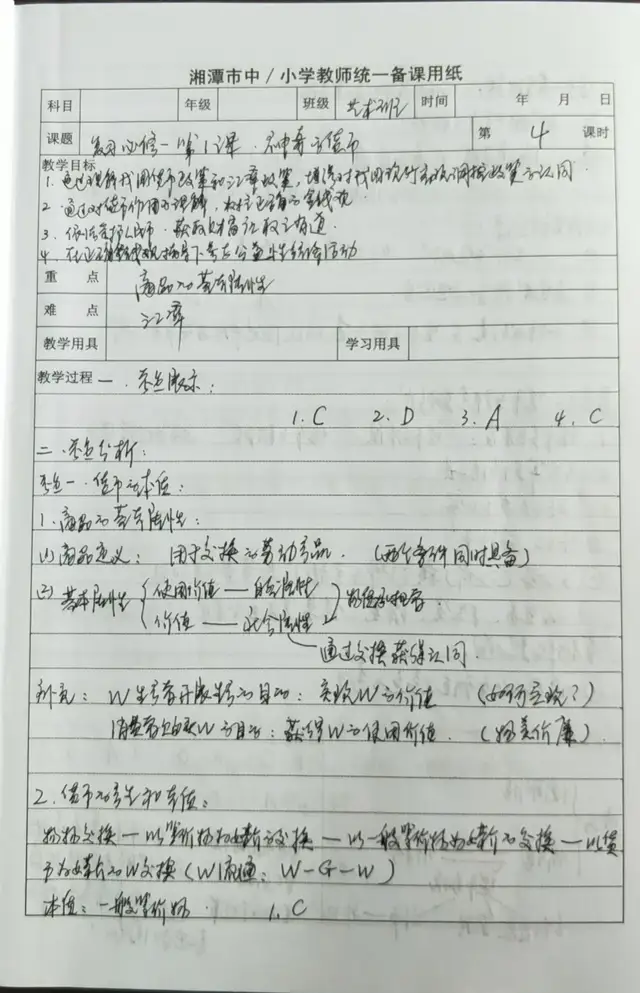 湘潭市中/小学教师统一备课用纸
科目 年级 班级 艺术班 时间 年 月 日
课题 必修一 第1课 神奇的货币 第 4 课时
教学目标
1. 通过理解我国货币政策和汇率政策，增强对我国现行宏观调控政策的认同
2. 通过对货币作用的理解，树立正确的金钱观
3. 依法爱护人民币，获取财富江权之有道
4. 在正确金钱观指导下
重点 商品的基本属性
难点 汇率
教学用具 学习用具
教学过程 一. 考点展示：
1. C 2. D 3. A 4. C
二. 考点分析：
考点一. 货币的本质：
1. 商品的基本属性：
(1) 商品定义： 用于交换的劳动产品. (两个条件同时具备)
(2) 基本属性 使用价值 — 自然属性
价值 — 社会属性
通过交换获得认同.
补充： W生产者开展生产的目的： 实现W的价值 (如何实现？)
消费者购买W的目的：获得W的使用价值. (物美价廉).
2. 货币的产生和本质：
物物交换 — 以等价物为媒介的交换 — 以一般等价物为媒介的交换 — 以货
币为媒介的W交换 (W流通：W-G-W)
本质：一般等价物. 1. C